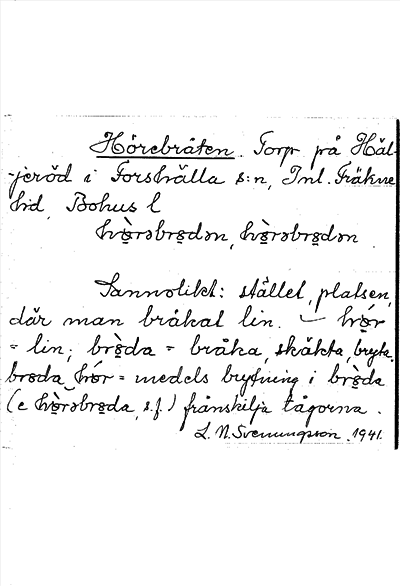 Hörebråten. Torp på Häl-
jeröd i Forshälla s:n, Inl. Fräkne
hd, Bohus l

Sannolikt: stället, platsen,
där man bråkat lin. – hör
= lin; bröda = bråka, skäkta, bryta.
broda hör = medels brytning i bröda
(e hörəbroda, s.f.) frånskilja tågorna.
L. N. Svenungsson. 1941.